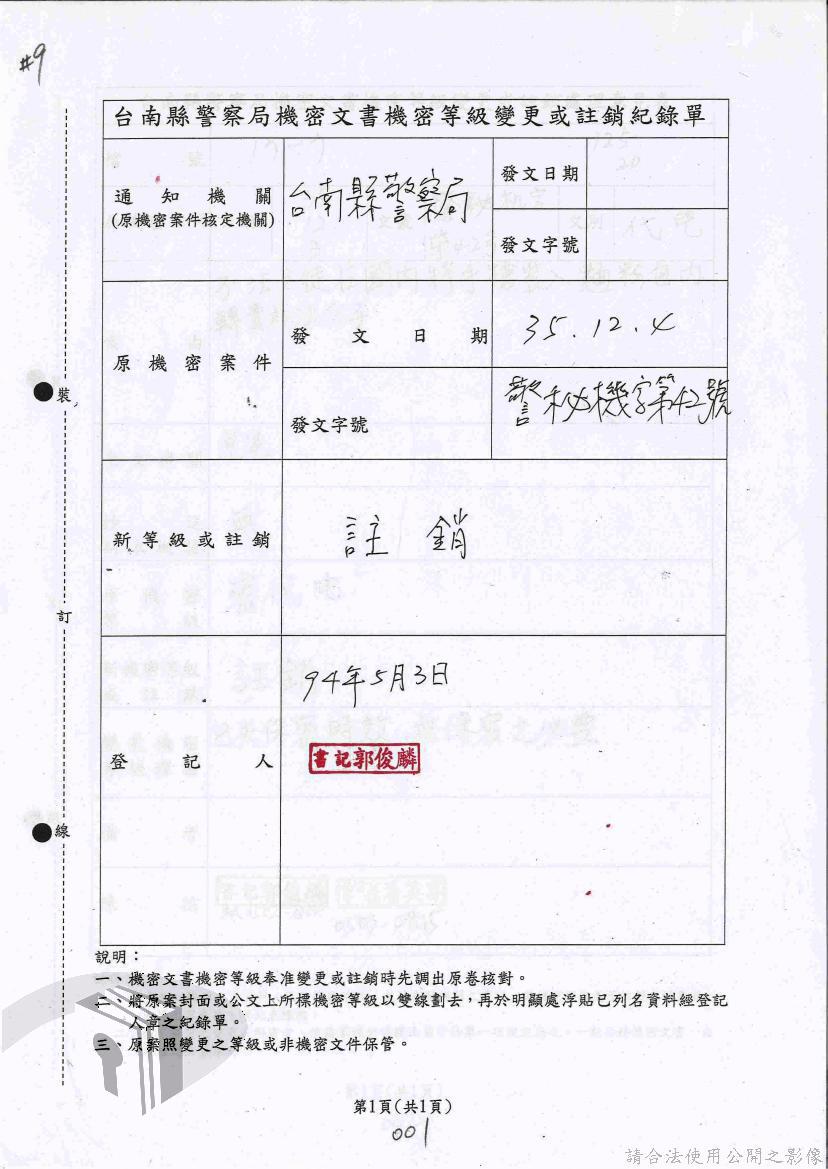 #9
台南縣警察局機密文書機密等級變更或註銷紀錄單
通知機關
(原機密案件核定機關)
台南縣警察局
發文日期
發文字號
原機密案件
發文日期
35.12.4
發文字號
警秘機字第42號
新等級或註銷
註銷
登記人
94年5月3日
書記郭俊麟
裝
訂
線
說明：
一、機密文書機密等級奉准變更或註銷時先調出原卷核對。
二、將原案封面或公文上所標機密等級以雙線劃去，再於明顯處浮貼已列名資料經登記
人章之紀錄單。
三、原案照變更之等級或非機密文件保管。
第1頁(共1頁)
001
請合法使用公開之影像